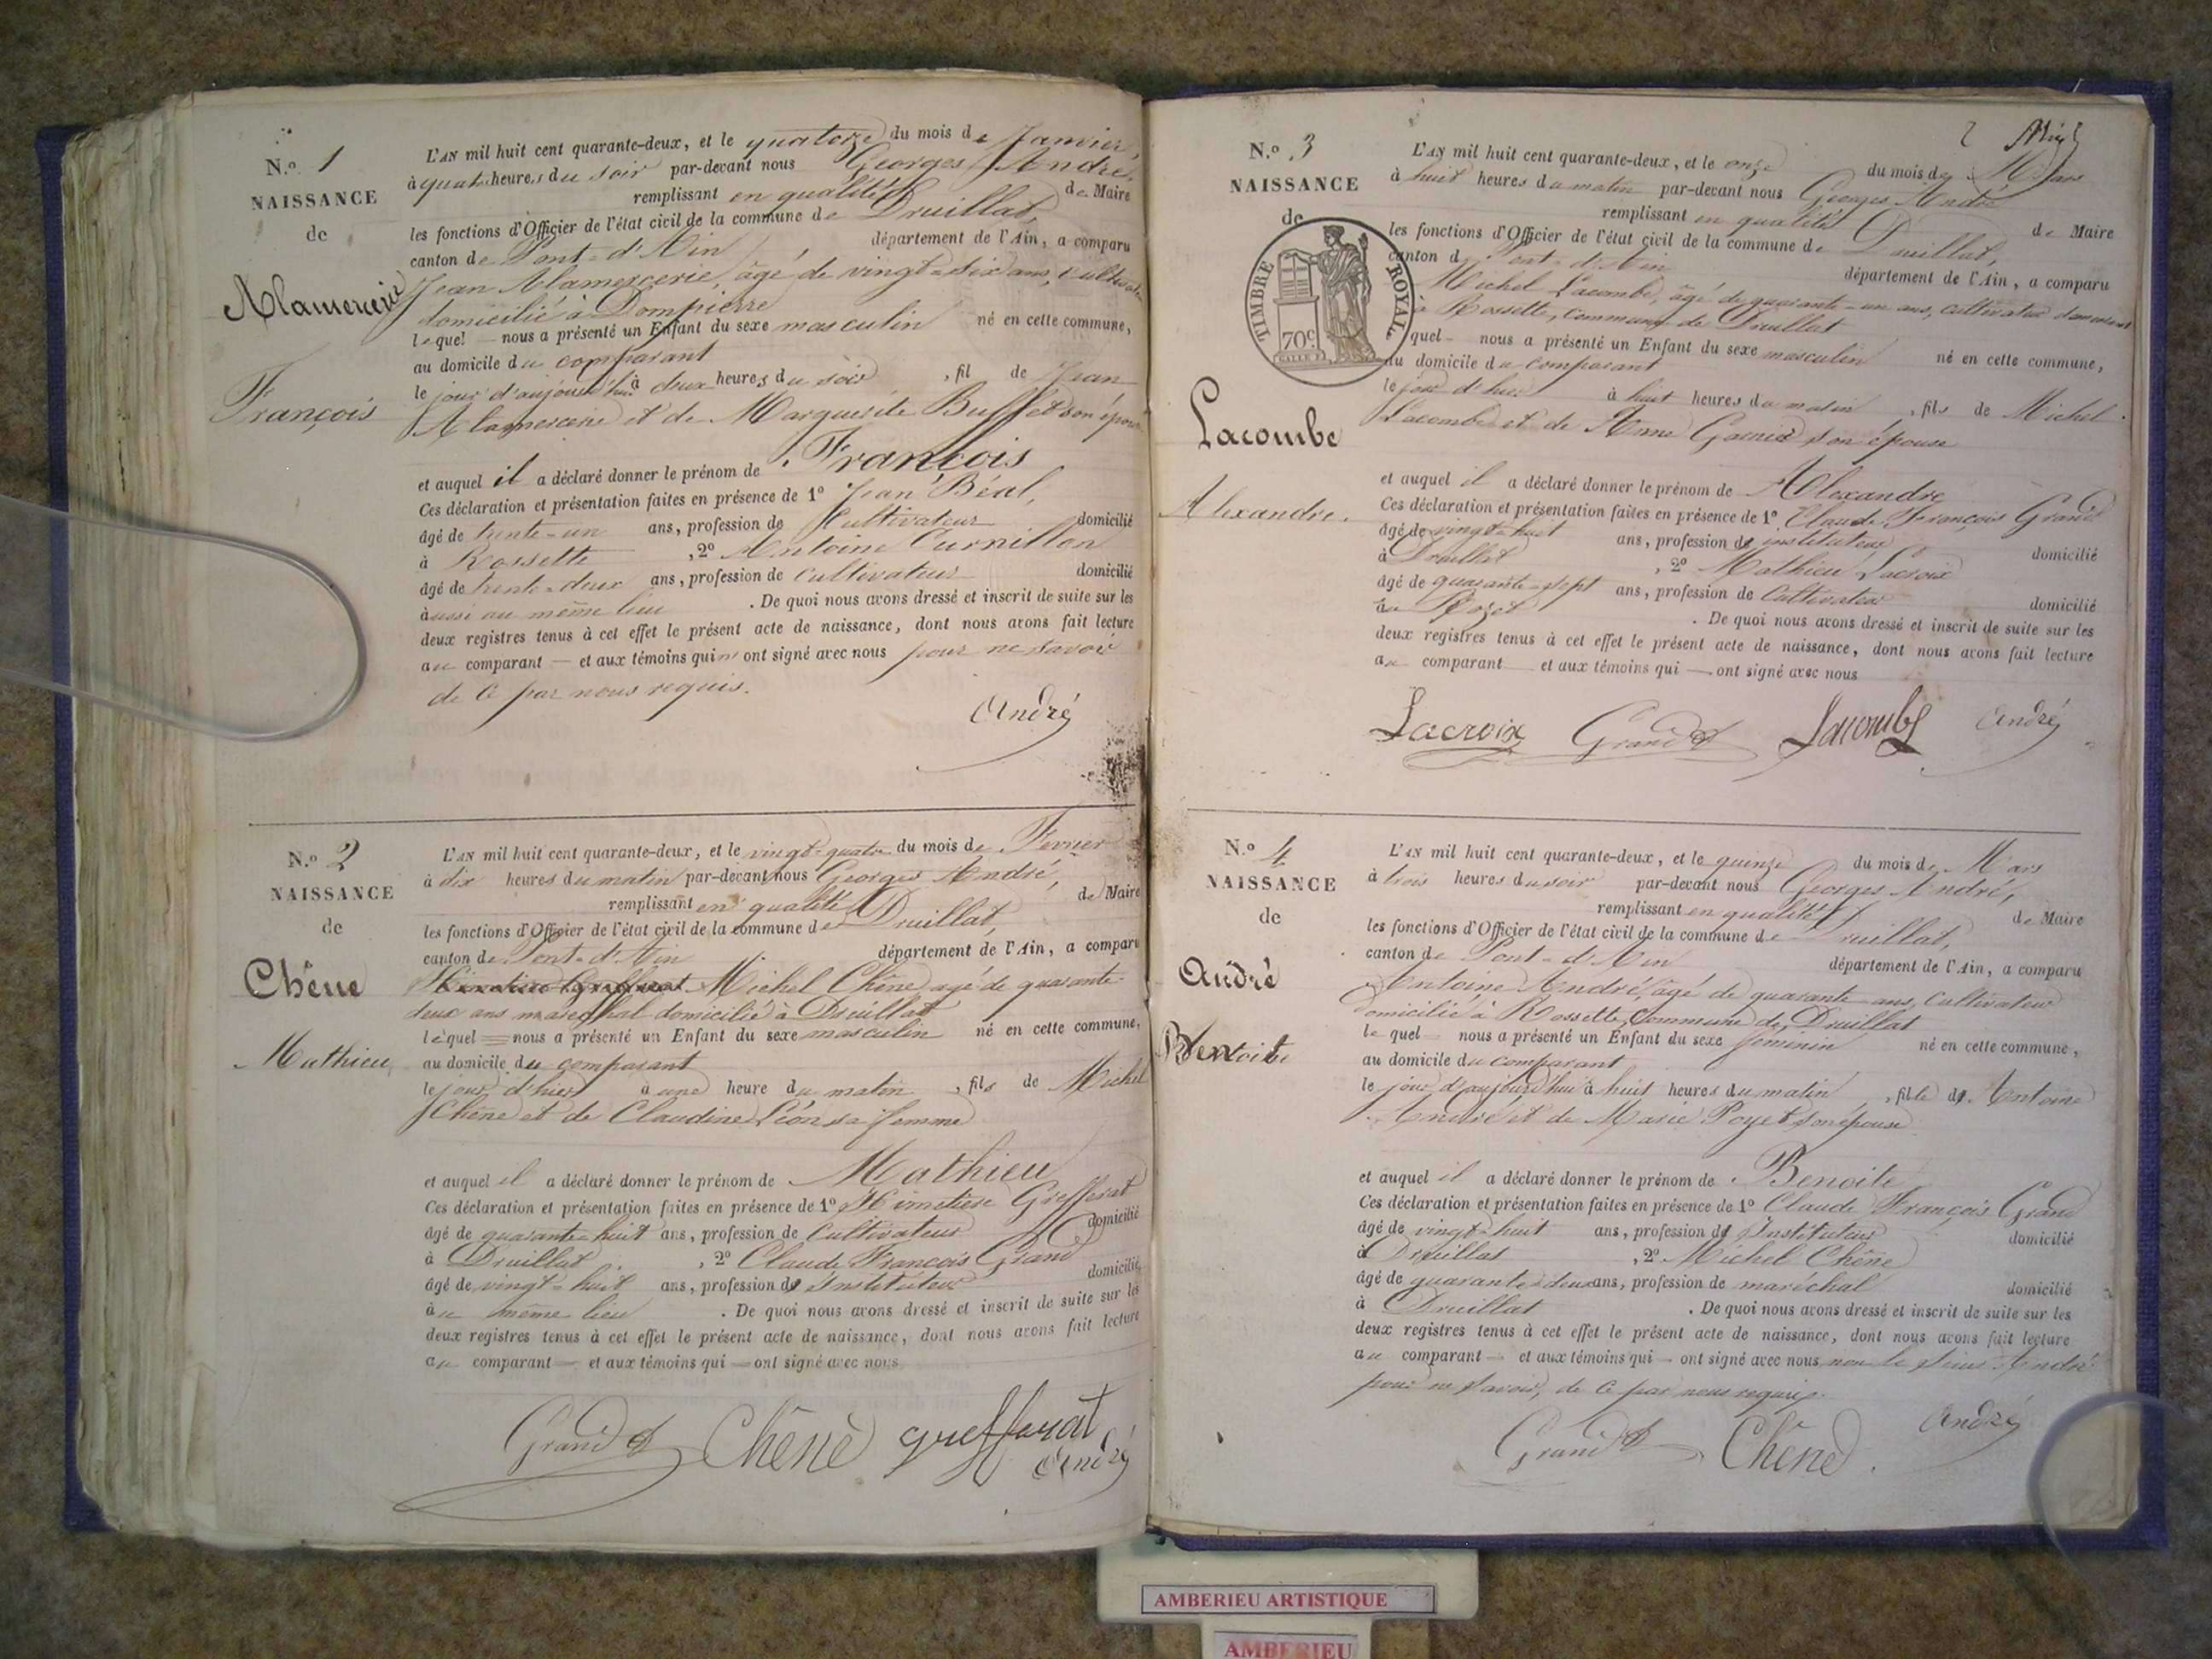 N.o 1
NAISSANCE
de
Alamercerie
François
L'AN mil huit cent quarante-deux, et le quatorze du mois de Janvier,
à quatre heures du soir par-devant nous Georges André,
remplissant en qualité de Maire
les fonctions d'Officier de l'état civil de la commune de Druillat,
canton de Pont-d'Ain département de l'Ain, a comparu
Jean Alamercerie, âgé de vingt-six ans, cultivateur
domicilié à Dompierre
lequel nous a présenté un Enfant du sexe masculin né en cette commune,
au domicile du comparant
le jour d'aujourd'hui à deux heures du soir, fil de Jean
Alamercerie et de Marguerite Buffet son épouse
et auquel il a déclaré donner le prénom de François
Ces déclaration et présentation faites en présence de 1o Jean Béal,
âgé de trente-un ans, profession de Cultivateur domicilié
à Rossette, 2o Antoine Curnillon
âgé de trente-deux ans, profession de cultivateur domicilié
aussi au même lieu. De quoi nous avons dressé et inscrit de suite sur les
deux registres tenus à cet effet le présent acte de naissance, dont nous avons fait lecture
au comparant — et aux témoins qui n'ont signé avec nous pour ne savoir
de ce par nous requis.
André
N.o 2
NAISSANCE
de
Chêne
Mathieu
L'AN mil huit cent quarante-deux, et le vingt-quatre du mois de Fevrier
à dix heures du matin par-devant nous Georges André,
remplissant en qualité de Maire
les fonctions d'Officier de l'état civil de la commune de Druillat,
canton de Pont-d'Ain département de l'Ain, a comparu
Michel Chêne, agé de quarante-
deux ans marechal domicilié à Druillat
lequel nous a présenté un Enfant du sexe masculin né en cette commune,
au domicile du comparant
le jour d'hier à une heure du matin, fils de Michel
Chêne et de Claudine Léon sa femme
et auquel il a déclaré donner le prénom de Mathieu
Ces déclaration et présentation faites en présence de 1o Greffferat
âgé de quarante-huit ans, profession de Cultivateur domicilié
à Druillat, 2o Claude François Grand
âgé de vingt-huit ans, profession de Instituteur domicilié
au même lieu. De quoi nous avons dressé et inscrit de suite sur les
deux registres tenus à cet effet le présent acte de naissance, dont nous avons fait lecture
au comparant — et aux témoins qui — ont signé avec nous
Grand Chêne Grefferat
André
2
N.o 3
NAISSANCE
de
TIMBRE ROYAL
70c
Lacombe
Alexandre.
L'AN mil huit cent quarante-deux, et le onze du mois de Mars
à huit heures du matin par-devant nous Georges André
remplissant en qualité de Maire
les fonctions d'Officier de l'état civil de la commune de Druillat,
canton de Pont-d'Ain département de l'Ain, a comparu
Michel Lacombe, âgé de quarante-un ans, cultivateur demeurant
à Rossette, commune de Druillat
quel nous a présenté un Enfant du sexe masculin né en cette commune,
au domicile du comparant
le jour d'hier à huit heures du matin, fils de Michel
Lacombe et de Anne Garnier son épouse
et auquel il a déclaré donner le prénom de Alexandre
Ces déclaration et présentation faites en présence de 1o Claude François Grand
âgé de vingt-huit ans, profession de instituteur domicilié
à Druillat, 2o Mathieu Lacroix
âgé de quarante-sept ans, profession de Cultivateur domicilié
au. De quoi nous avons dressé et inscrit de suite sur les
deux registres tenus à cet effet le présent acte de naissance, dont nous avons fait lecture
au comparant — et aux témoins qui — ont signé avec nous
Lacroix Grand Lacombe André
N.o 4
NAISSANCE
de
André
Benoite
L'AN mil huit cent quarante-deux, et le quinze du mois de Mars
à trois heures du soir par-devant nous Georges André,
remplissant en qualité de Maire
les fonctions d'Officier de l'état civil de la commune de Druillat,
canton de Pont-d'Ain département de l'Ain, a comparu
Antoine André, âgé de quarante ans, Cultivateur
domicilié à Rossette, Commune de Druillat
le quel nous a présenté un Enfant du sexe feminin né en cette commune,
au domicile du comparant
le jour d'aujourd'hui à huit heures du matin, fille de Antoine
André et de Marie Poyet son épouse
et auquel il a déclaré donner le prénom de Benoite
Ces déclaration et présentation faites en présence de 1o Claude François Grand
âgé de vingt-huit ans, profession de Instituteur domicilié
à Druillat, 2o Michel Chêne
âgé de quarante-deux ans, profession de maréchal domicilié
à Druillat. De quoi nous avons dressé et inscrit de suite sur les
deux registres tenus à cet effet le présent acte de naissance, dont nous avons fait lecture
au comparant — et aux témoins qui — ont signé avec nous, non le sieur André
pour ne savoir, de ce par nous requis.
Grand Chêne André
AMBERIEU ARTISTIQUE
AMBERIEU